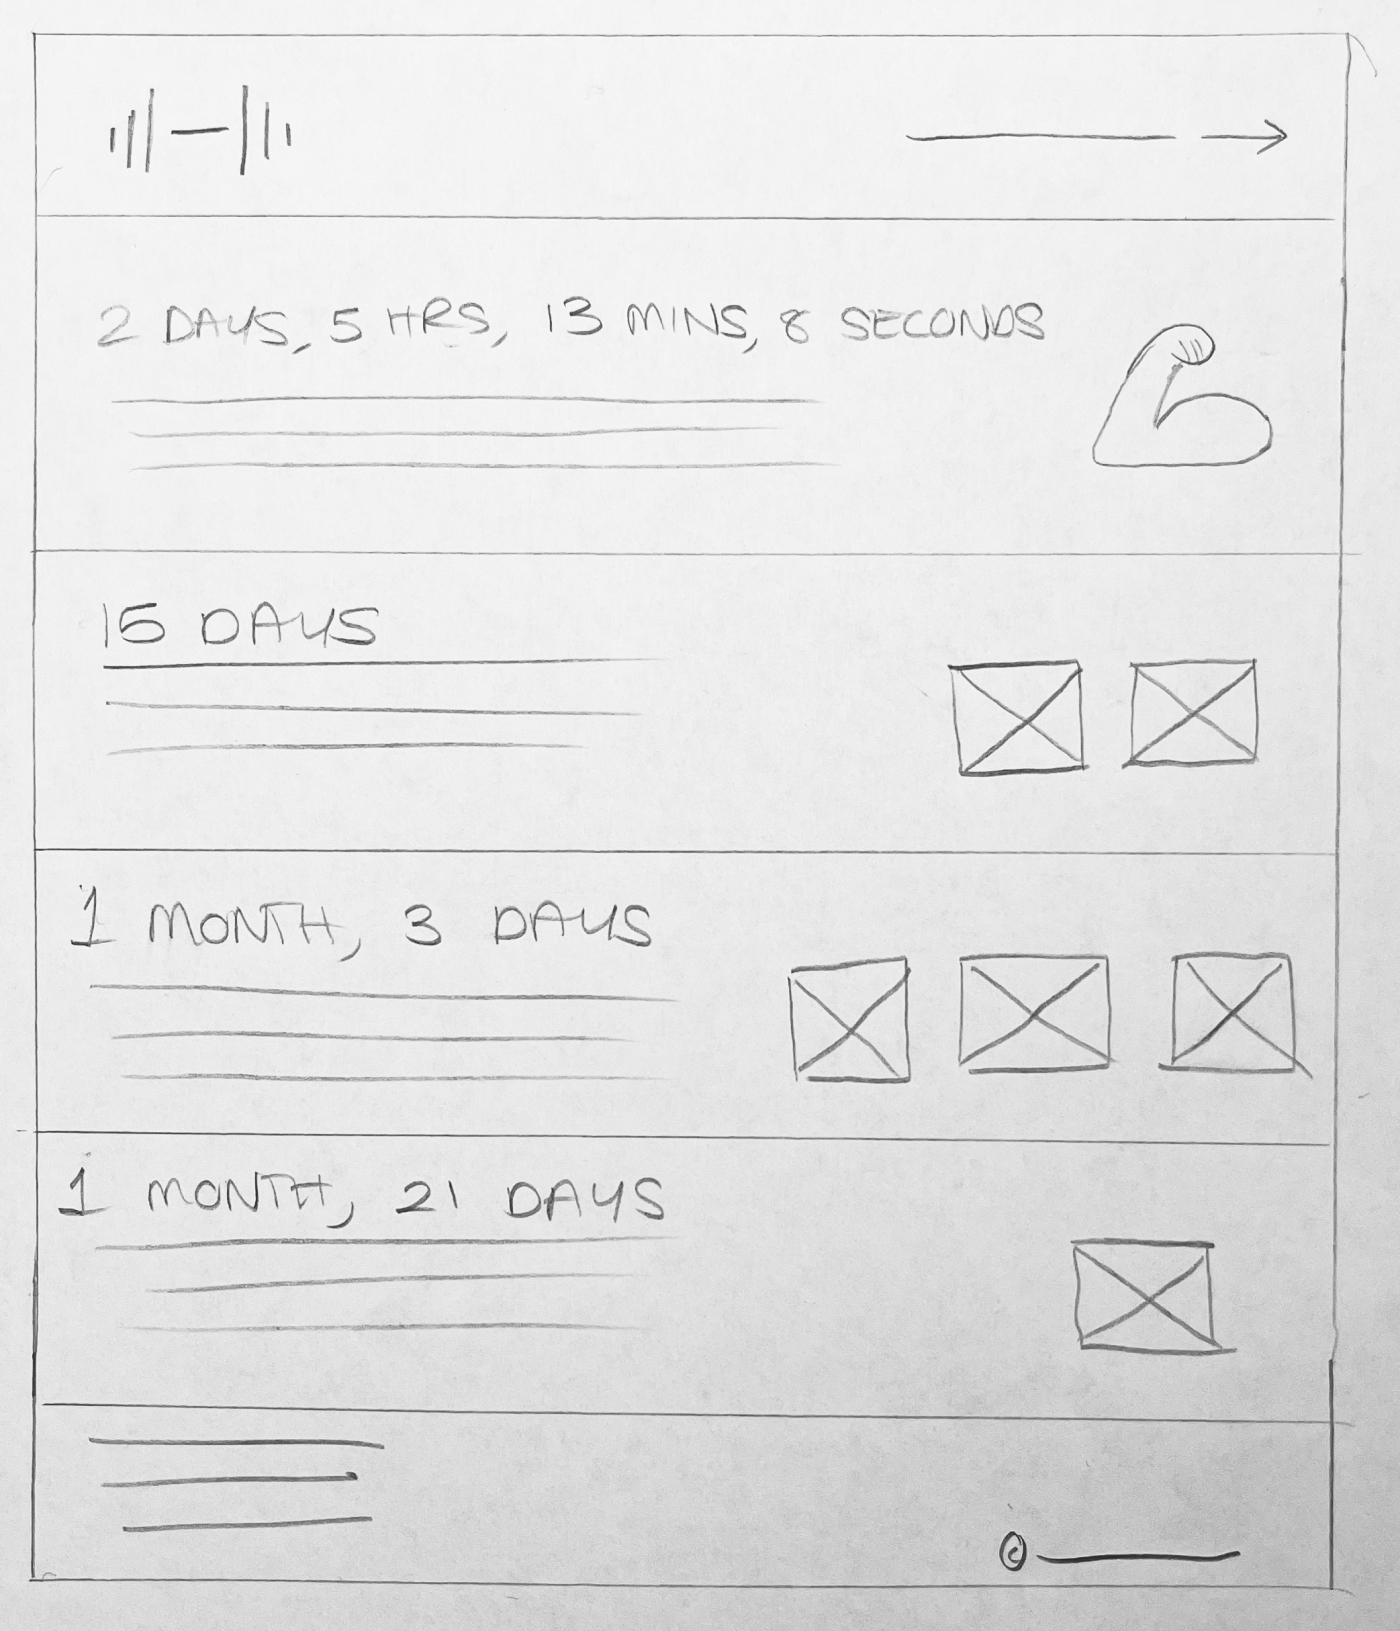 2 DAYS, 5 HRS, 13 MINS, 8 SECONDS
15 DAYS
1 MONTH, 3 DAYS
1 MONTH, 21 DAYS
©